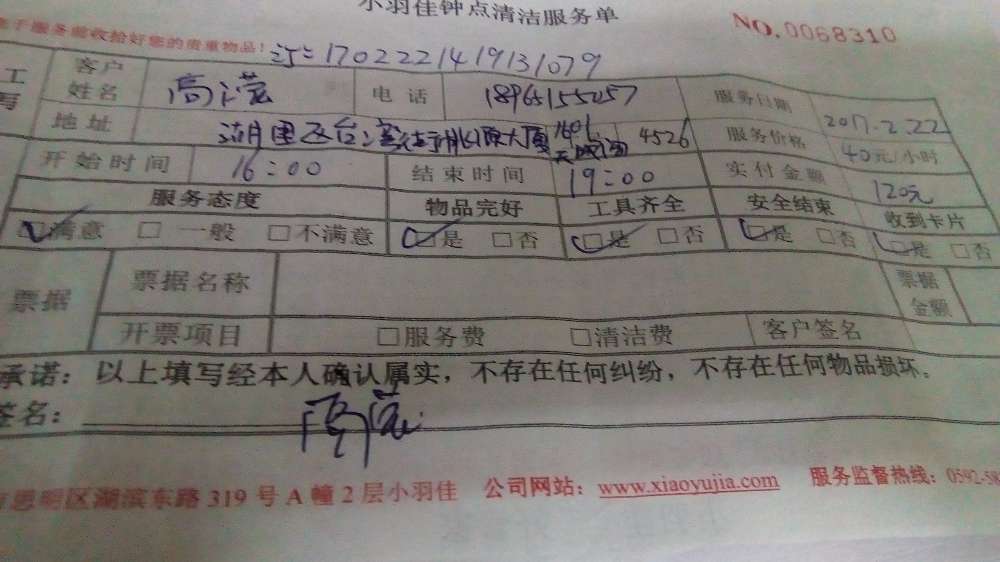 小羽佳钟点清洁服务单
NO.0068310
服务前收拾好您的贵重物品! 1702221419131079
客户姓名 高滢 电话 18965155257 服务日期 2017.2.22
地址 湖里区台湾街 大厦 1601 4526 服务价格 40元/小时
开始时间 16:00 结束时间 19:00 实付金额 120元
服务态度 物品完好 工具齐全 安全结束 收到卡片
☑满意 □一般 □不满意 ☑是 □否 ☑是 □否 ☑是 □否 ☑是 □否
票据 票据名称 票据金额
开票项目 □服务费 □清洁费 客户签名
承诺：以上填写经本人确认属实，不存在任何纠纷，不存在任何物品损坏。
签名： 高滢
思明区湖滨东路 319 号 A 幢 2 层小羽佳 公司网站：www.xiaoyujia.com 服务监督热线：0592-58